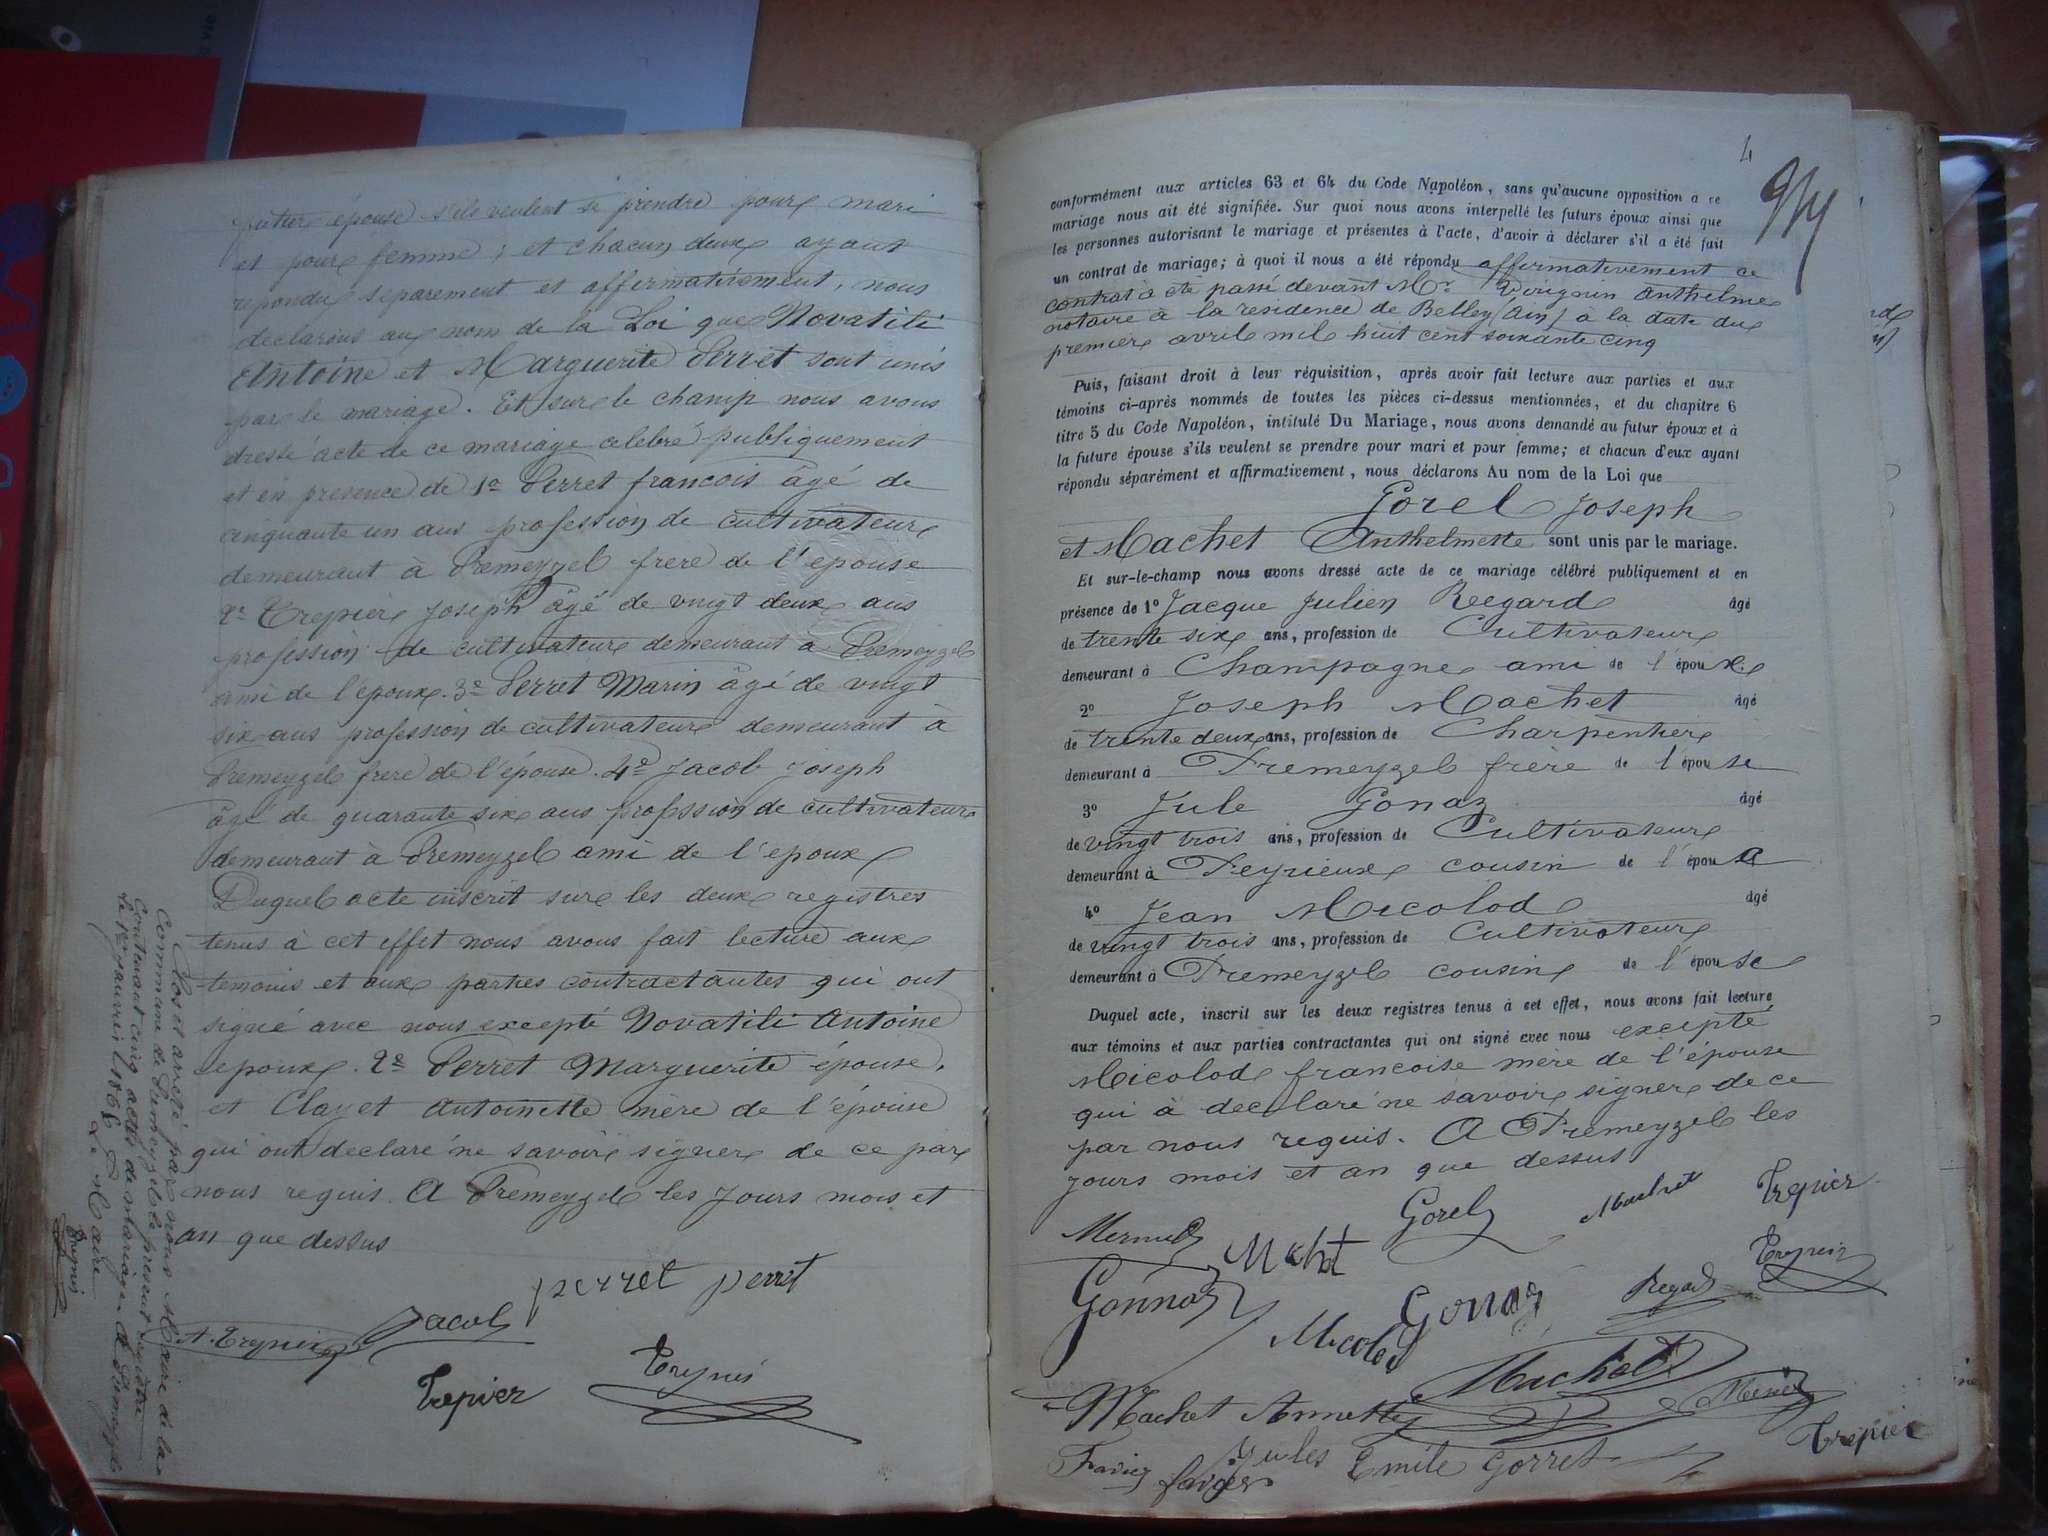 future épouse s'ils veulent se prendre pour mari
et pour femme ; et chacun deux ayant
repondu separement et affirmativement, nous
declarons au nom de la Loi que Novatiti
Antoine et Marguerite Perret sont unis
par le mariage. Et sur le champ nous avons
dressé acte de ce mariage celebré publiquement
et en presence de 1º Perret francois âgé de
cinquante un ans profession de cultivateur
demeurant à Premeyzel frere de l'epouse
2º Trepier Joseph âgé de vingt deux ans
profession de cultivateur demeurant à Premeyzel
ami de l'époux. 3º Perret Marin âgé de vingt
six ans profession de cultivateur demeurant à
Premeyzel frere de l'épouse. 4º Jacob Joseph
âgé de quarante six ans profession de cultivateur
demeurant à Premeyzel ami de l'epoux
Duquel acte inscrit sur les deux registres
tenus à cet effet nous avons fait lecture aux
temoins et aux parties contractantes qui ont
signé avec nous excepté Novatiti Antoine
epoux. 2º Perret Marguerite épouse.
et Clayet Antoinette mère de l'épouse
qui ont declaré ne savoir signer de ce par
nous requis. A Premeyzel les jours mois et
an que dessus
perret perret
Jacob
A. Trepier
Trepier
Clos et arreté par nous Maire de la
Commune de Premeyzel le present registre
contenant cinq actes de mariage. A Premeyzel
le 1er janvier 1866
Le Maire
4
conformément aux articles 63 et 64 du Code Napoléon, sans qu'aucune opposition à ce
mariage nous ait été signifiée. Sur quoi nous avons interpellé les futurs époux ainsi que
les personnes autorisant le mariage et présentes à l'acte, d'avoir à déclarer s'il a été fait
un contrat de mariage; à quoi il nous a été répondu affirmativement ce
contrat a été passé devant Mr. Anthelme
notaire à la residence de Belley (Ain) a la date du
premier avril mil huit cent soixante cinq
Puis, faisant droit à leur réquisition, après avoir fait lecture aux parties et aux
témoins ci-après nommés de toutes les pièces ci-dessus mentionnées, et du chapitre 6
titre 5 du Code Napoléon, intitulé Du Mariage, nous avons demandé au futur époux et à
la future épouse s'ils veulent se prendre pour mari et pour femme; et chacun d'eux ayant
répondu séparément et affirmativement, nous déclarons Au nom de la Loi que
Gorel Joseph
et Machet Anthelmette sont unis par le mariage.
Et sur-le-champ nous avons dressé acte de ce mariage célébré publiquement et en
présence de 1º Jacque Julien Regard âgé
de trente six ans, profession de Cultivateur
demeurant à Champagne ami de l'époux
2º Joseph Machet âgé
de trente deux ans, profession de Charpentier
demeurant à Premeyzel frère de l'épouse
3º Jule Gonaz âgé
de vingt trois ans, profession de Cultivateur
demeurant à Peyrieux cousin de l'épou
4º Jean Micolod âgé
de vingt trois ans, profession de Cultivateur
demeurant à Premeyzel cousin de l'épouse
Duquel acte, inscrit sur les deux registres tenus à cet effet, nous avons fait lecture
aux témoins et aux parties contractantes qui ont signé avec nous excepté
Micolod francoise mère de l'épouse
qui à declaré ne savoir signer de ce
par nous requis. A Premeyzel les
jours mois et an que dessus
Gorel Machet Trepier
Gonnaz Gonaz Regard
Micolod
Machet
Machet Annette
Jules Emile Gorret Trepier